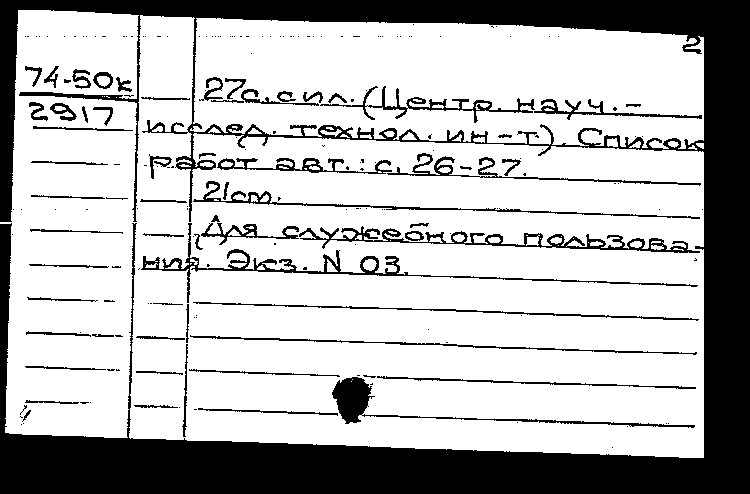 2
74-50к
2917
27с. с ил. (Центр. науч.-
исслед. технол. ин-т). Список
работ авт.: с. 26-27.
21см.
Для служебного пользова-
ния. Экз. N 03.